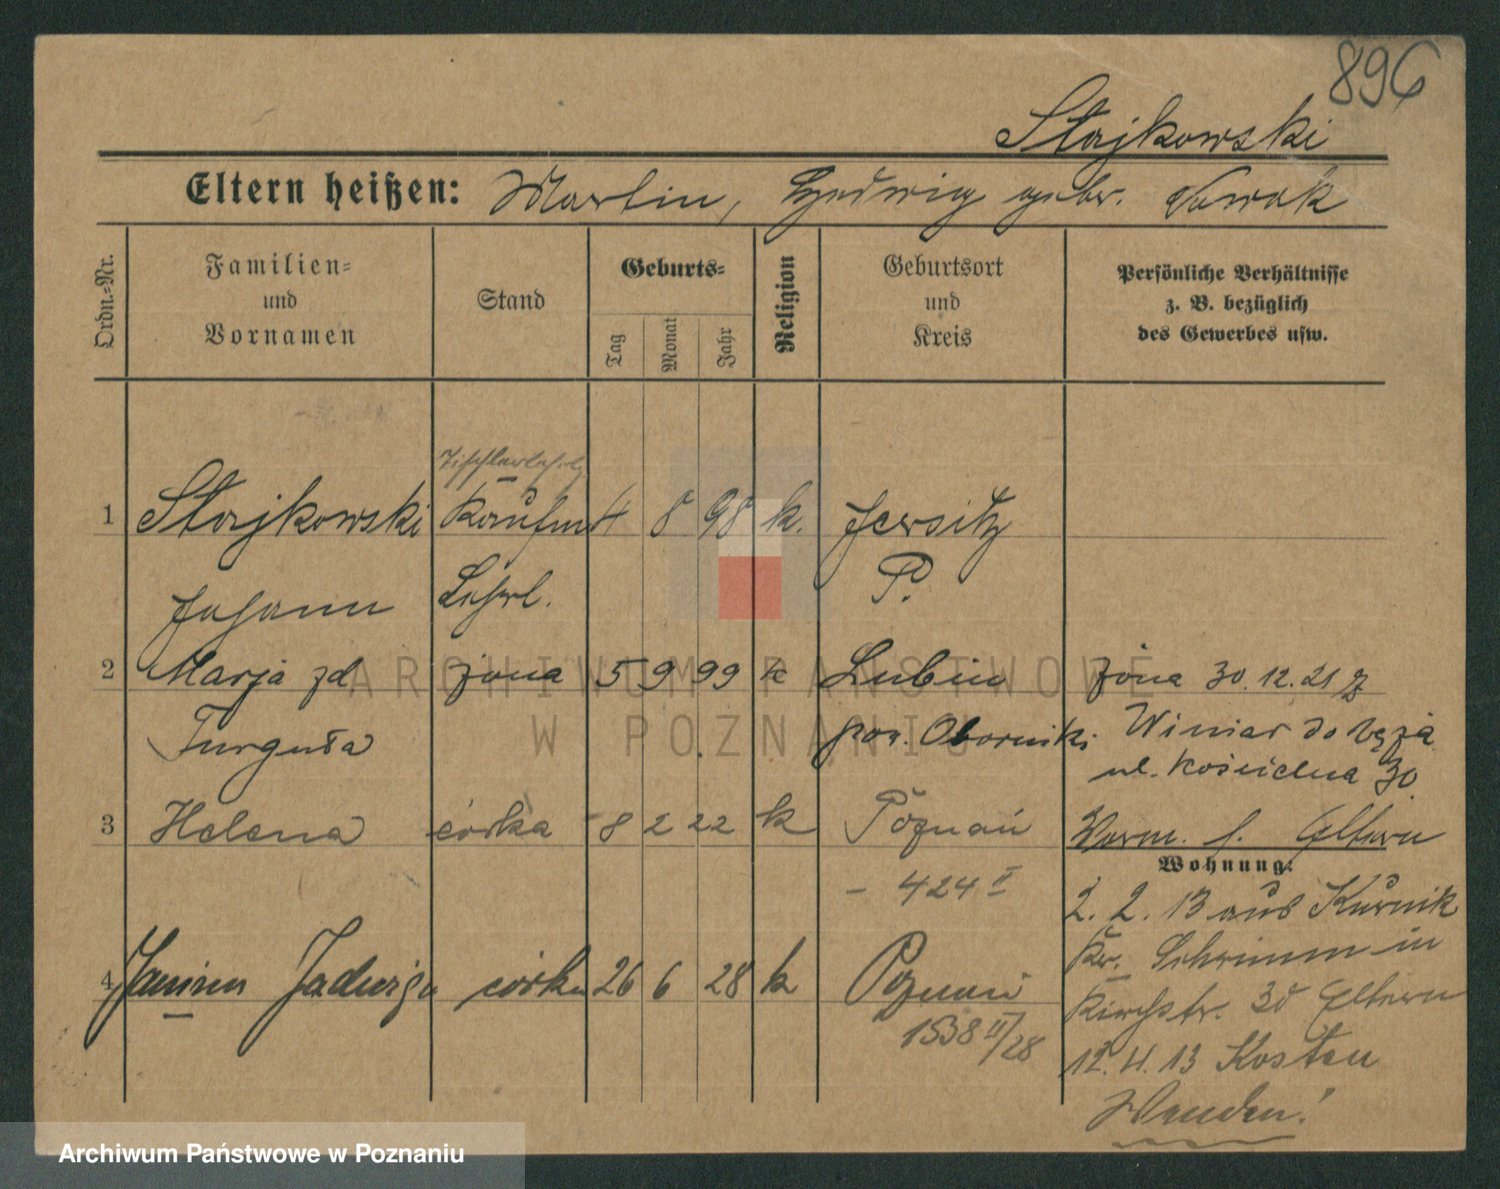 896
Stajkowski
Eltern heißen: Martin, Hedwig gebr. Nowak
Ordn.-Nr.
Familien-
und
Vornamen
Stand
Geburts-
Tag
Monat
Jahr
Religion
Geburtsort
und
Kreis
Persönliche Verhältnisse
z. B. bezüglich
des Gewerbes usw.
Tischlerlehrlg
1 Stajkowski Kaufm 4 8 98 k. Jersitz
Johann Lehrl. P.
2 Marja zd żona 5 9 99 k Lubin żona 30.12.21 z
Furguła pow. Oborniki Winiar do męża
ul. Kościelna 30
3 Helena córka 8 2 22 k Poznań Worm. s. Eltern
Wohnung:
- 424 II
2. 2. 13 aus Kurnik
Kr. Schrimm in
4 Janina Jadwiga córka 26 6 28 k Poznań
Kirchstr. 30 Eltern
1538 II/28
12.4.13 Kosten
Wenden!
ARCHIWUM PAŃSTWOWE
W POZNANIU
Archiwum Państwowe w Poznaniu